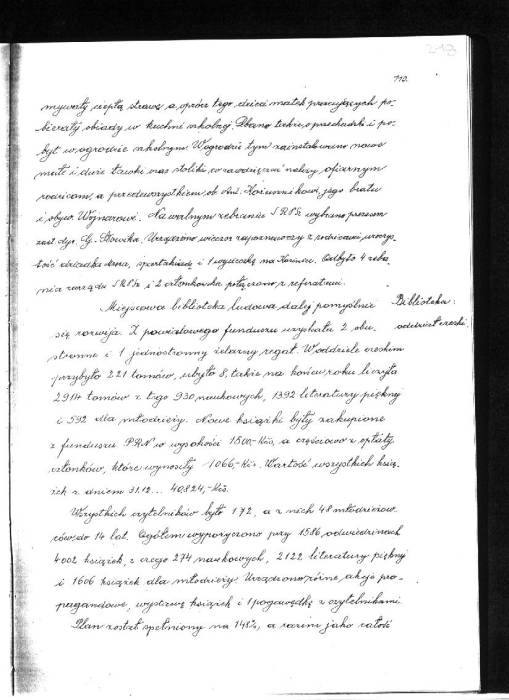 218
110.
mywały ciepłą strawę a oprócz tego dzieci matek pracujących po-
bierały obiady w kuchni szkolnej. Dbano także o przechadzki i po-
byt w ogrodzie szkolnym. W ogrodzie tym zainstalowano nowe
małe i duże ławski oraz stoliki, co zawdzięczać należy ofiarnym
rodzicom, a przedewszystkiem ob. Ant. Korzunnikowi, jego bratu
i obyw. Wojnarowi. Na walnym zebraniu SRPSz wybrano prezesem
zast. dyr. G. Słowika. Urządzono wieczór zapoznawczy z rodzicami, uroczy-
stość dziadka mroza, spartakiadę i 1 wycieczkę na Kozinec. Odbyto 4 zebra-
nia zarządu SRPSz i 2 członkowska połączono z referatami.
Miejscowa biblioteka ludowa dalej pomyślnie
Biblioteka:
się rozwija. Z powiatowego funduszu uzyskała 2 obu-
oddział czeski.
stronne i 1 jednostronny żelazny regał. W oddziele czeskim
przybyło 221 tomów, ubyło 8, także na koniec roku liczyła
2914 tomów z tego 930 naukowych, 1392 literatury pięknej
i 592 dla młodzieży. Nowe książki były zakupione
z funduszu PRN w wysokości 1500,- Kčs, a częściowo z opłaty
członków, które wynosiły 1066,- Kčs. Wartość wszystkich ksią-
żek z dniem 31.12... 40824,- Kčs.
Wszystkich czytelników było 172, a z nich 48 młodzieżow-
ców do 14 lat. Ogółem wypożyczono przy 1586 odwiedzinach
4002 książek, z czego 274 naukowych, 2122 literatury pięknej
i 1606 książek dla młodzieży. Urządzono różne akcje pro-
pagandowe, wystawę książek i 1 pogawędkę z czytelnikami.
Plan został spełniony na 148%, a razem jako całość